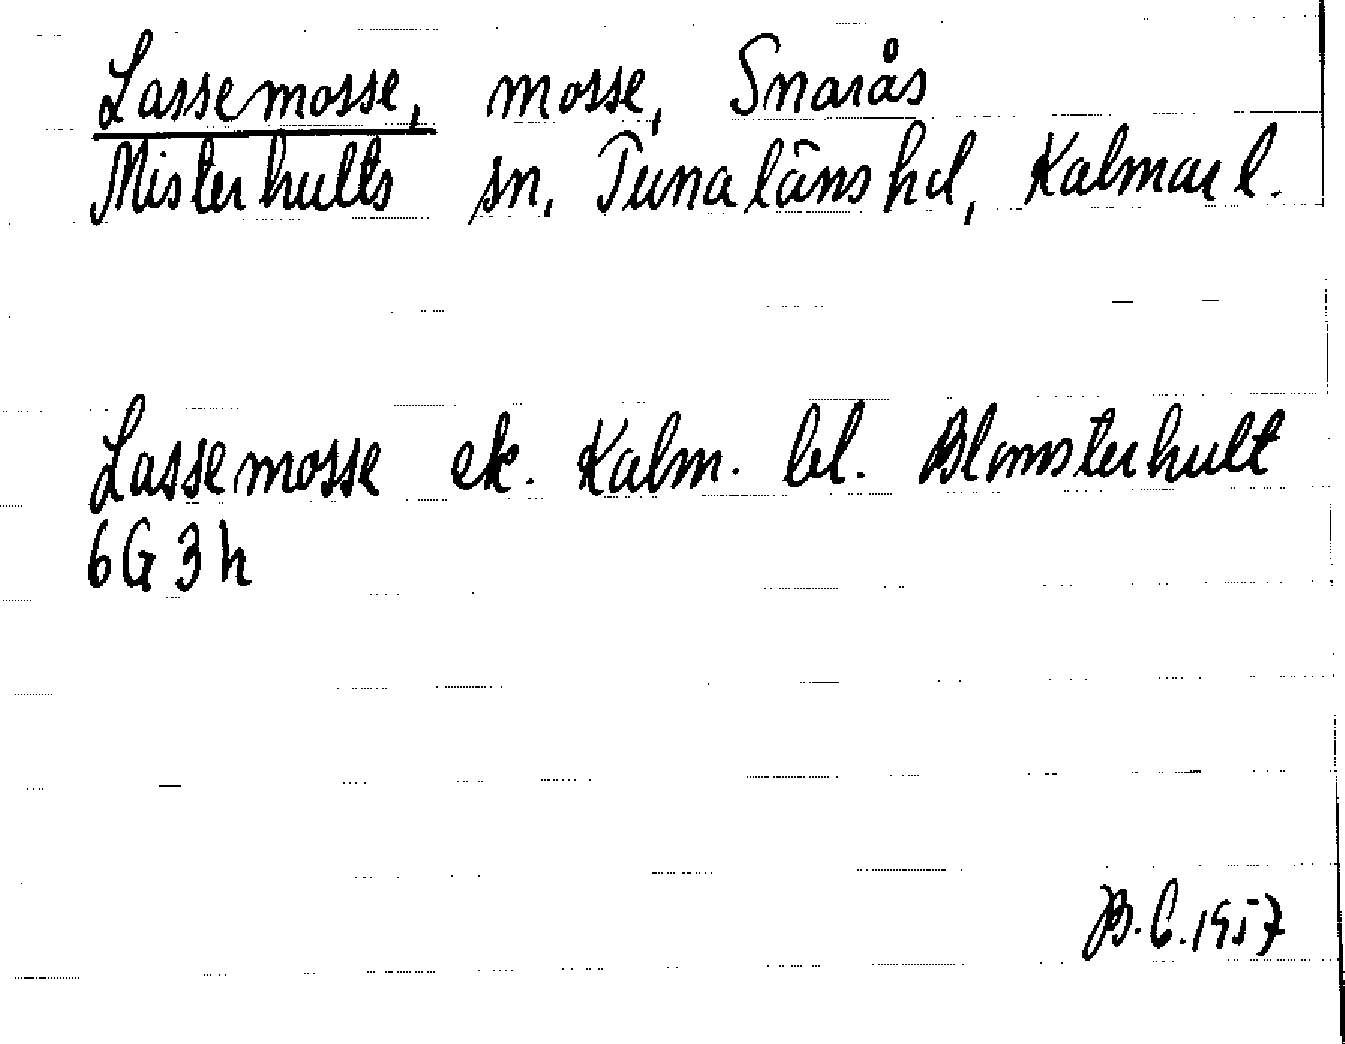 Lassemosse, mosse, Snarås
Misterhults sn, Tunaläns hd, Kalmar l.
Lassemosse ek. Kalm. bl. Blomsterhult
6G 3h
B.C. 1957